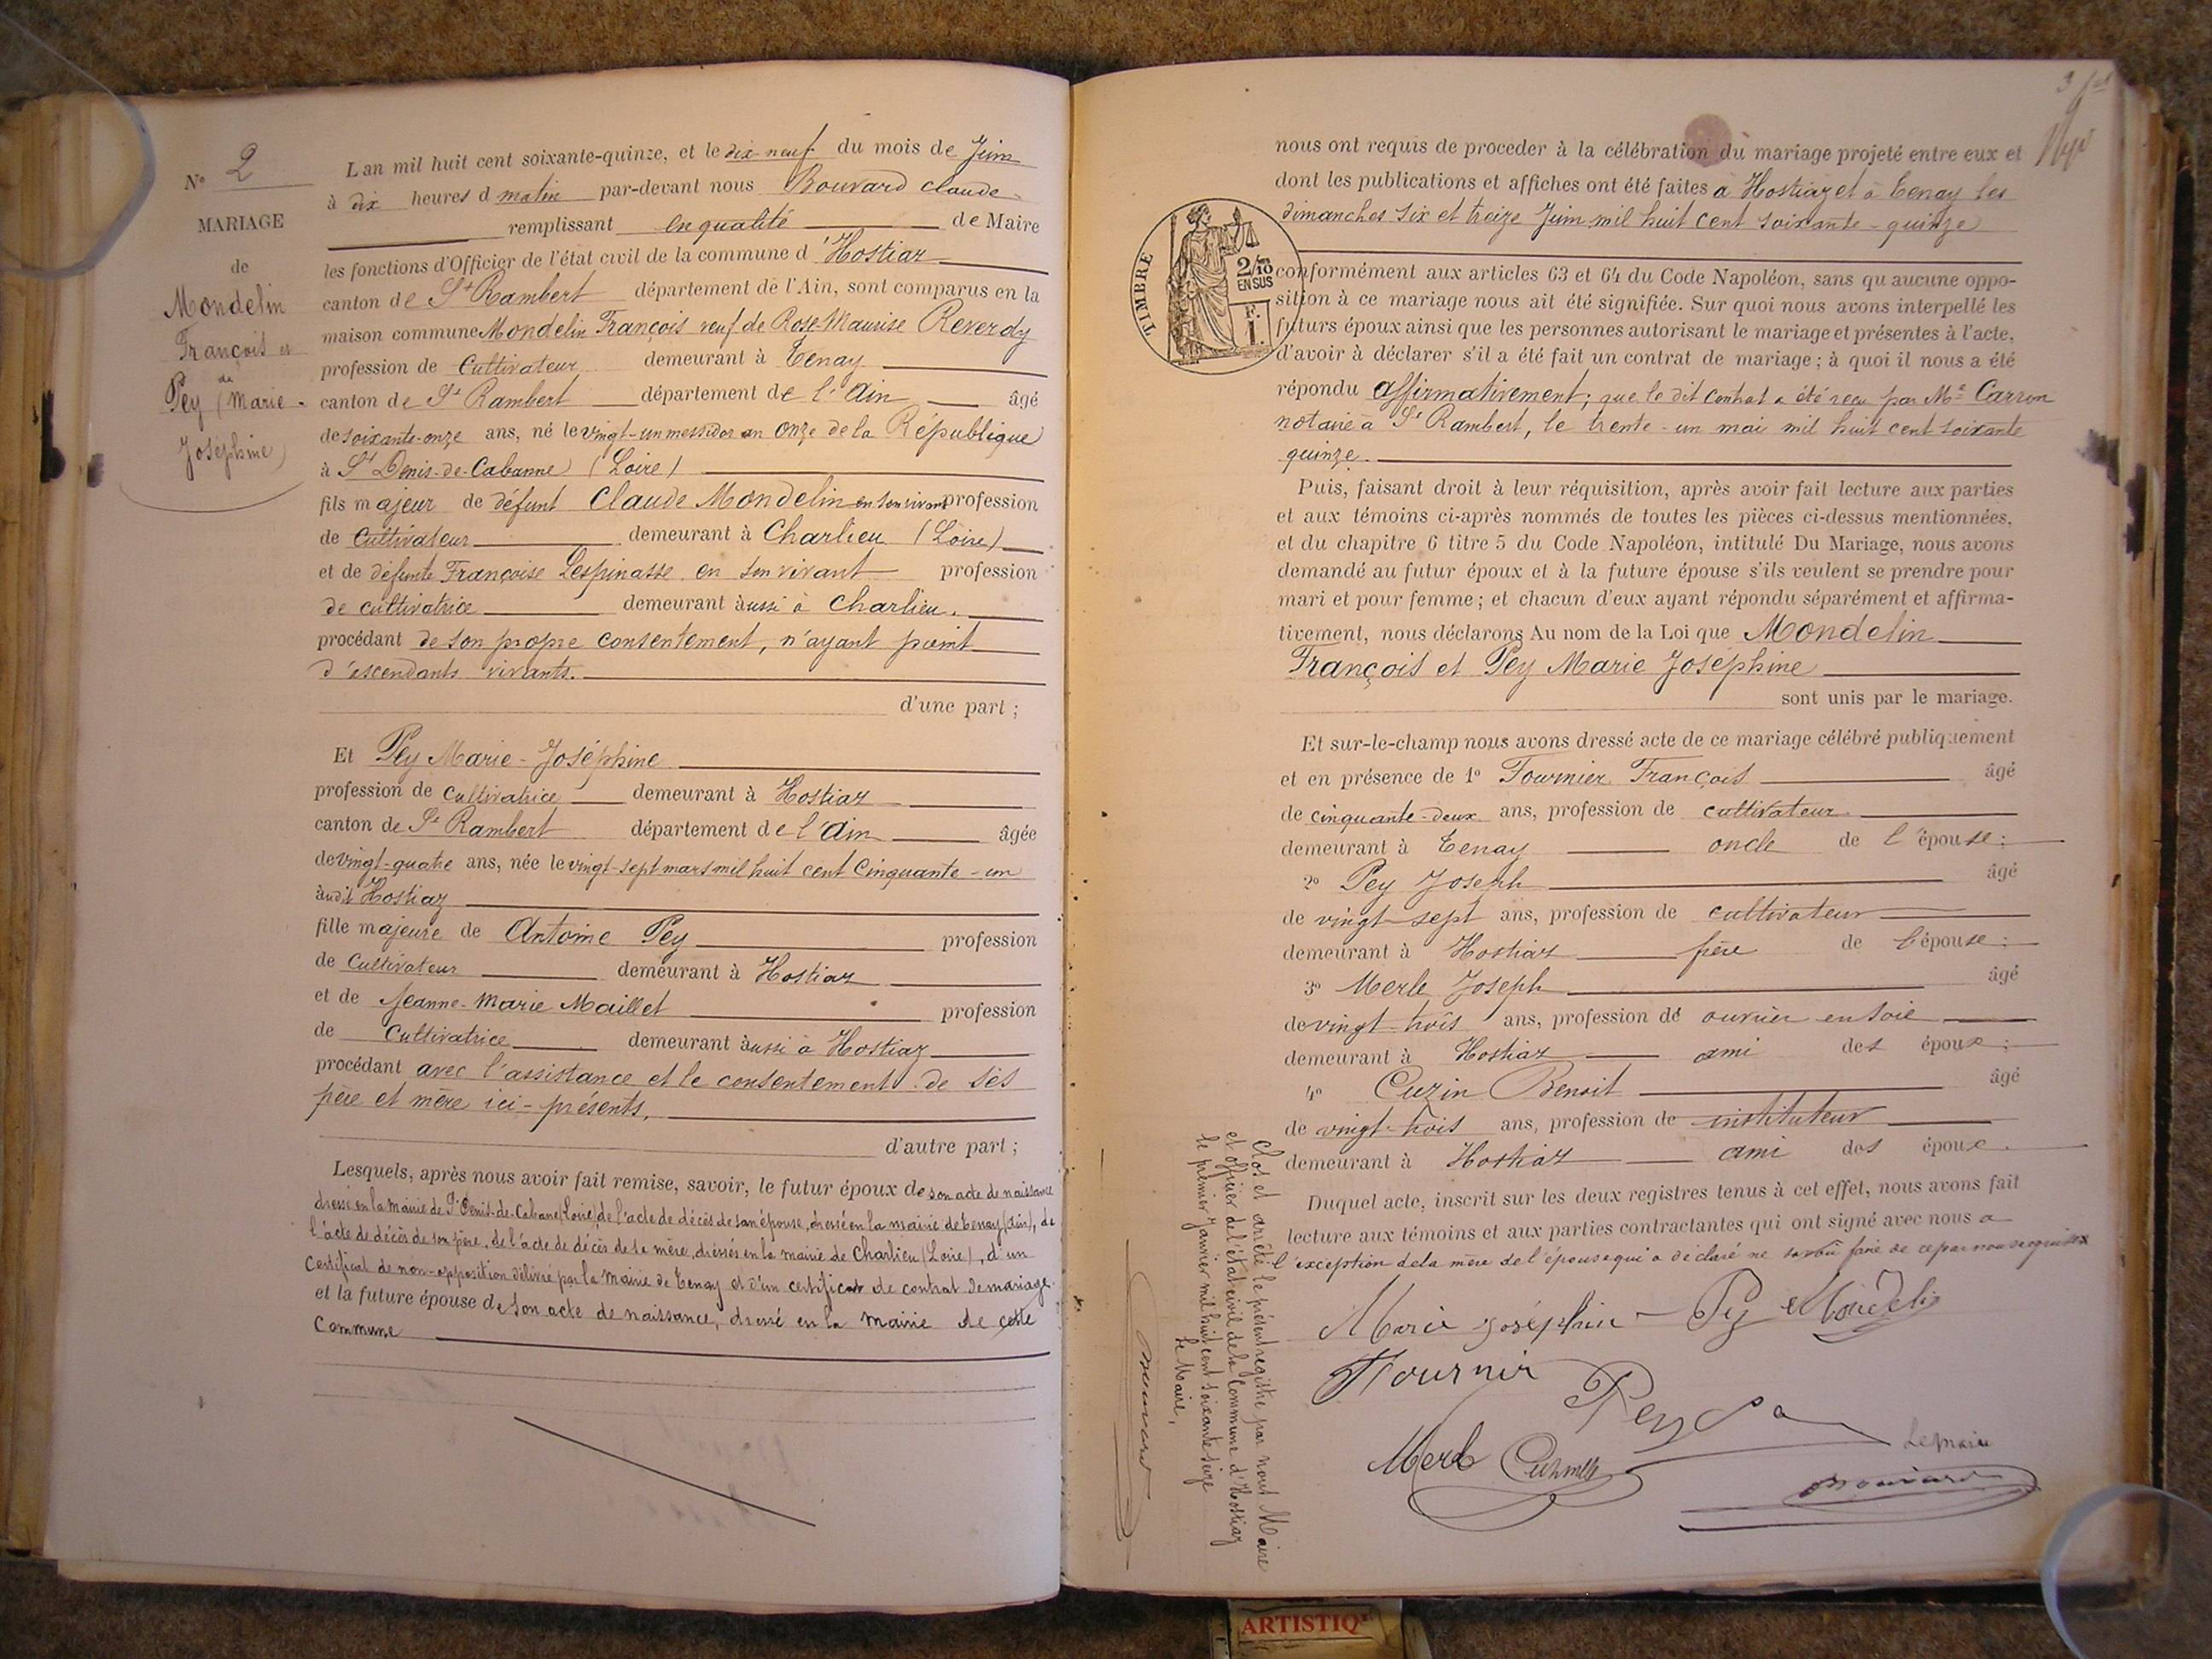 N° 2
MARIAGE
de
Mondelin
François et
de
Pey (Marie-
Joséphine)
L'an mil huit cent soixante-quinze, et le dix neuf du mois de Juin
à dix heures d matin par-devant nous Bouvard Claude
remplissant en qualité de Maire
les fonctions d'Officier de l'état civil de la commune d'Hostiaz
canton de St Rambert département de l'Ain, sont comparus en la
maison commune Mondelin François veuf de Rose-Maurise Reverdy
profession de Cultivateur demeurant à Tenay
canton de St Rambert département de l'Ain âgé
de soixante-onze ans, né le vingt-un messidor an onze de la République
à St Denis-de-Cabanne (Loire)
fils majeur de défunt Claude Mondelin en son vivant profession
de Cultivateur demeurant à Charlieu (Loire)
et de défunte Françoise Lespinasse en son vivant profession
de cultivatrice demeurant aussi à Charlieu.
procédant de son propre consentement, n'ayant point
d'escendants vivants.
d'une part ;
Et Pey Marie-Joséphine
profession de Cultivatrice demeurant à Hostiaz
canton de St Rambert département de l'Ain âgée
de vingt-quatre ans, née le vingt-sept mars mil huit cent cinquante-un
audit Hostiaz
fille majeure de Antoine Pey profession
de Cultivateur demeurant à Hostiaz
et de Jeanne-Marie Maillet profession
de Cultivatrice demeurant aussi à Hostiaz
procédant avec l'assistance et le consentement de ses
père et mère ici-présents.
d'autre part ;
Lesquels, après nous avoir fait remise, savoir, le futur époux de son acte de naissance
dressé en la Mairie de St Denis-de-Cabane (Loire), de l'acte de décès de son épouse, dressé en la mairie de Tenay (Ain), de
l'acte de décès de son père, de l'acte de décès de sa mère, dressés en la mairie de Charlieu (Loire), d'un
certificat de non-opposition délivré par la Mairie de Tenay et d'un certificat de contrat de mariage.
et la future épouse de son acte de naissance, dressé en la Mairie de cette
Commune
3
nous ont requis de proceder à la célébration du mariage projeté entre eux et
dont les publications et affiches ont été faites à Hostiaz et à Tenay les
dimanches six et treize Juin mil huit cent soixante-quinze
TIMBRE
2/10
EN SUS
F.
1.
conformément aux articles 63 et 64 du Code Napoléon, sans qu aucune oppo-
sition à ce mariage nous ait été signifiée. Sur quoi nous avons interpellé les
futurs époux ainsi que les personnes autorisant le mariage et présentes à l'acte,
d'avoir à déclarer s'il a été fait un contrat de mariage ; à quoi il nous a été
répondu affirmativement ; que le dit contrat a été reçu par Me Carron
notaire à St Rambert, le trente-un mai mil huit cent soixante
quinze.
Puis, faisant droit à leur réquisition, après avoir fait lecture aux parties
et aux témoins ci-après nommés de toutes les pièces ci-dessus mentionnées,
et du chapitre 6 titre 5 du Code Napoléon, intitulé Du Mariage, nous avons
demandé au futur époux et à la future épouse s'ils veulent se prendre pour
mari et pour femme ; et chacun d'eux ayant répondu séparément et affirma-
tivement, nous déclarons Au nom de la Loi que Mondelin
François et Pey Marie Joséphine
sont unis par le mariage.
Et sur-le-champ nous avons dressé acte de ce mariage célébré publiquement
et en présence de 1° Fournier François âgé
de cinquante-deux ans, profession de cultivateur
demeurant à Tenay oncle de l'épouse ;
2° Pey Joseph âgé
de vingt-sept ans, profession de cultivateur
demeurant à Hostiaz frère de l'épouse ;
3° Merle Joseph âgé
de vingt-trois ans, profession de ouvrier en soie
demeurant à Hostiaz ami des époux ;
4° Cuzin Benoit âgé
de vingt-trois ans, profession de instituteur
demeurant à Hostiaz ami des époux.
Duquel acte, inscrit sur les deux registres tenus à cet effet, nous avons fait
lecture aux témoins et aux parties contractantes qui ont signé avec nous a
l'exception de la mère de l'épouse qui a déclaré ne savoir faire de ce par nous requise
Marie joséphine Pey Mondelin
Fournir
Pey
Merle Cuzin
Le maire
Bouvard
Clos et arrêté le présent registre par nous Maire
et officier de l'état civil de la Commune d'Hostiaz
le premier Janvier mil huit cent soixante seize
Le Maire,
Bouvard
ARTISTIQ